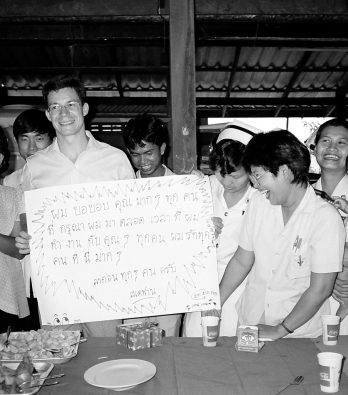 ผม ขอขอบ คุณ มาก ๆ ทุก คน
ที่ กรุณา ผม มา ตลอด เวลา ที่ ผม
ทำ งาน กับ คุณ ๆ ทุกคน ผม รักทุก
คน ดี มาก ๆ
ลาก่อน ทุก ๆ คน ครับ